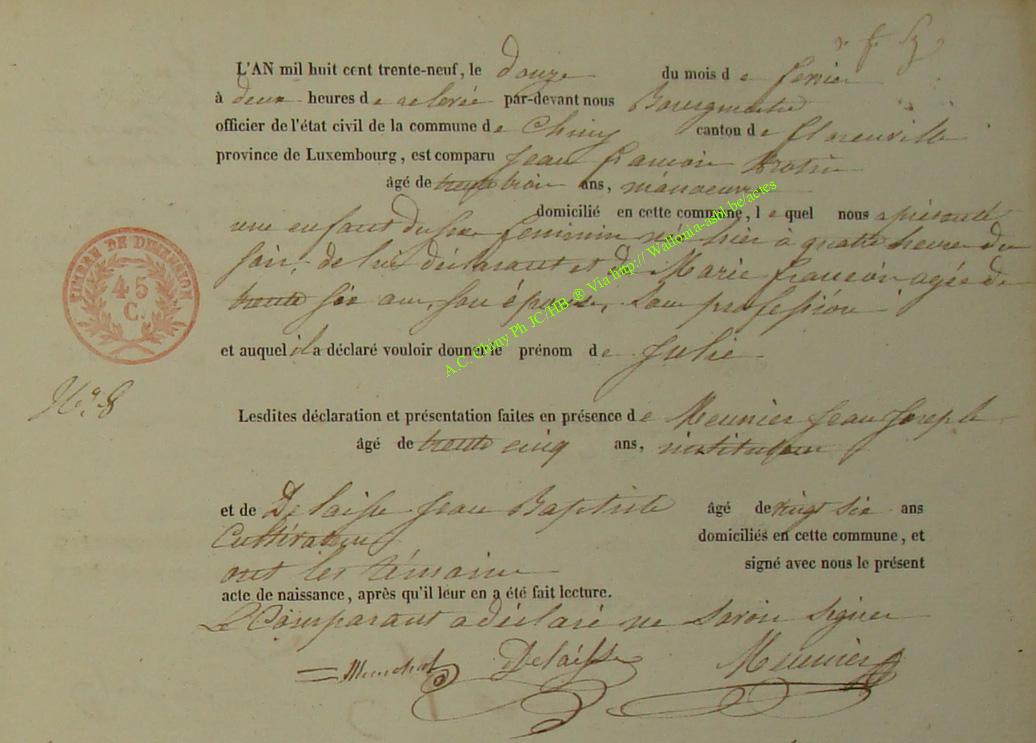 L'AN mil huit cent trente-neuf, le douze du mois de fevrier
à deux heures de relevée par-devant nous Bourgmestre
officier de l'état civil de la commune de Chiny canton de florenville
province de Luxembourg, est comparu Jean françois
âgé de trente trois ans, manoeuvre
domicilié en cette commune, lequel nous a présenté
une enfant du sexe feminin née hier à quatre heure du
soir, de lui déclarant et de Marie françois agée de
trente six ans, son épouse, sans profession
et auquel il a déclaré vouloir donner le prénom de Julie
TIMBRE DE DIMENSION
45
C.
A.C. Chiny Ph JC/HB ® Via http:// Wallonia-asbl.be/actes
N° 8
Lesdites déclaration et présentation faites en présence de Meunier Jean Joseph
âgé de trente cinq ans, instituteur
et de Delaisse Jean Baptiste âgé de vingt six ans
Cultivateur domiciliés en cette commune, et
ont les témoins signé avec nous le présent
acte de naissance, après qu'il leur en a été fait lecture.
Le Comparant a déclaré ne savoir signer
Delaisse Meunier